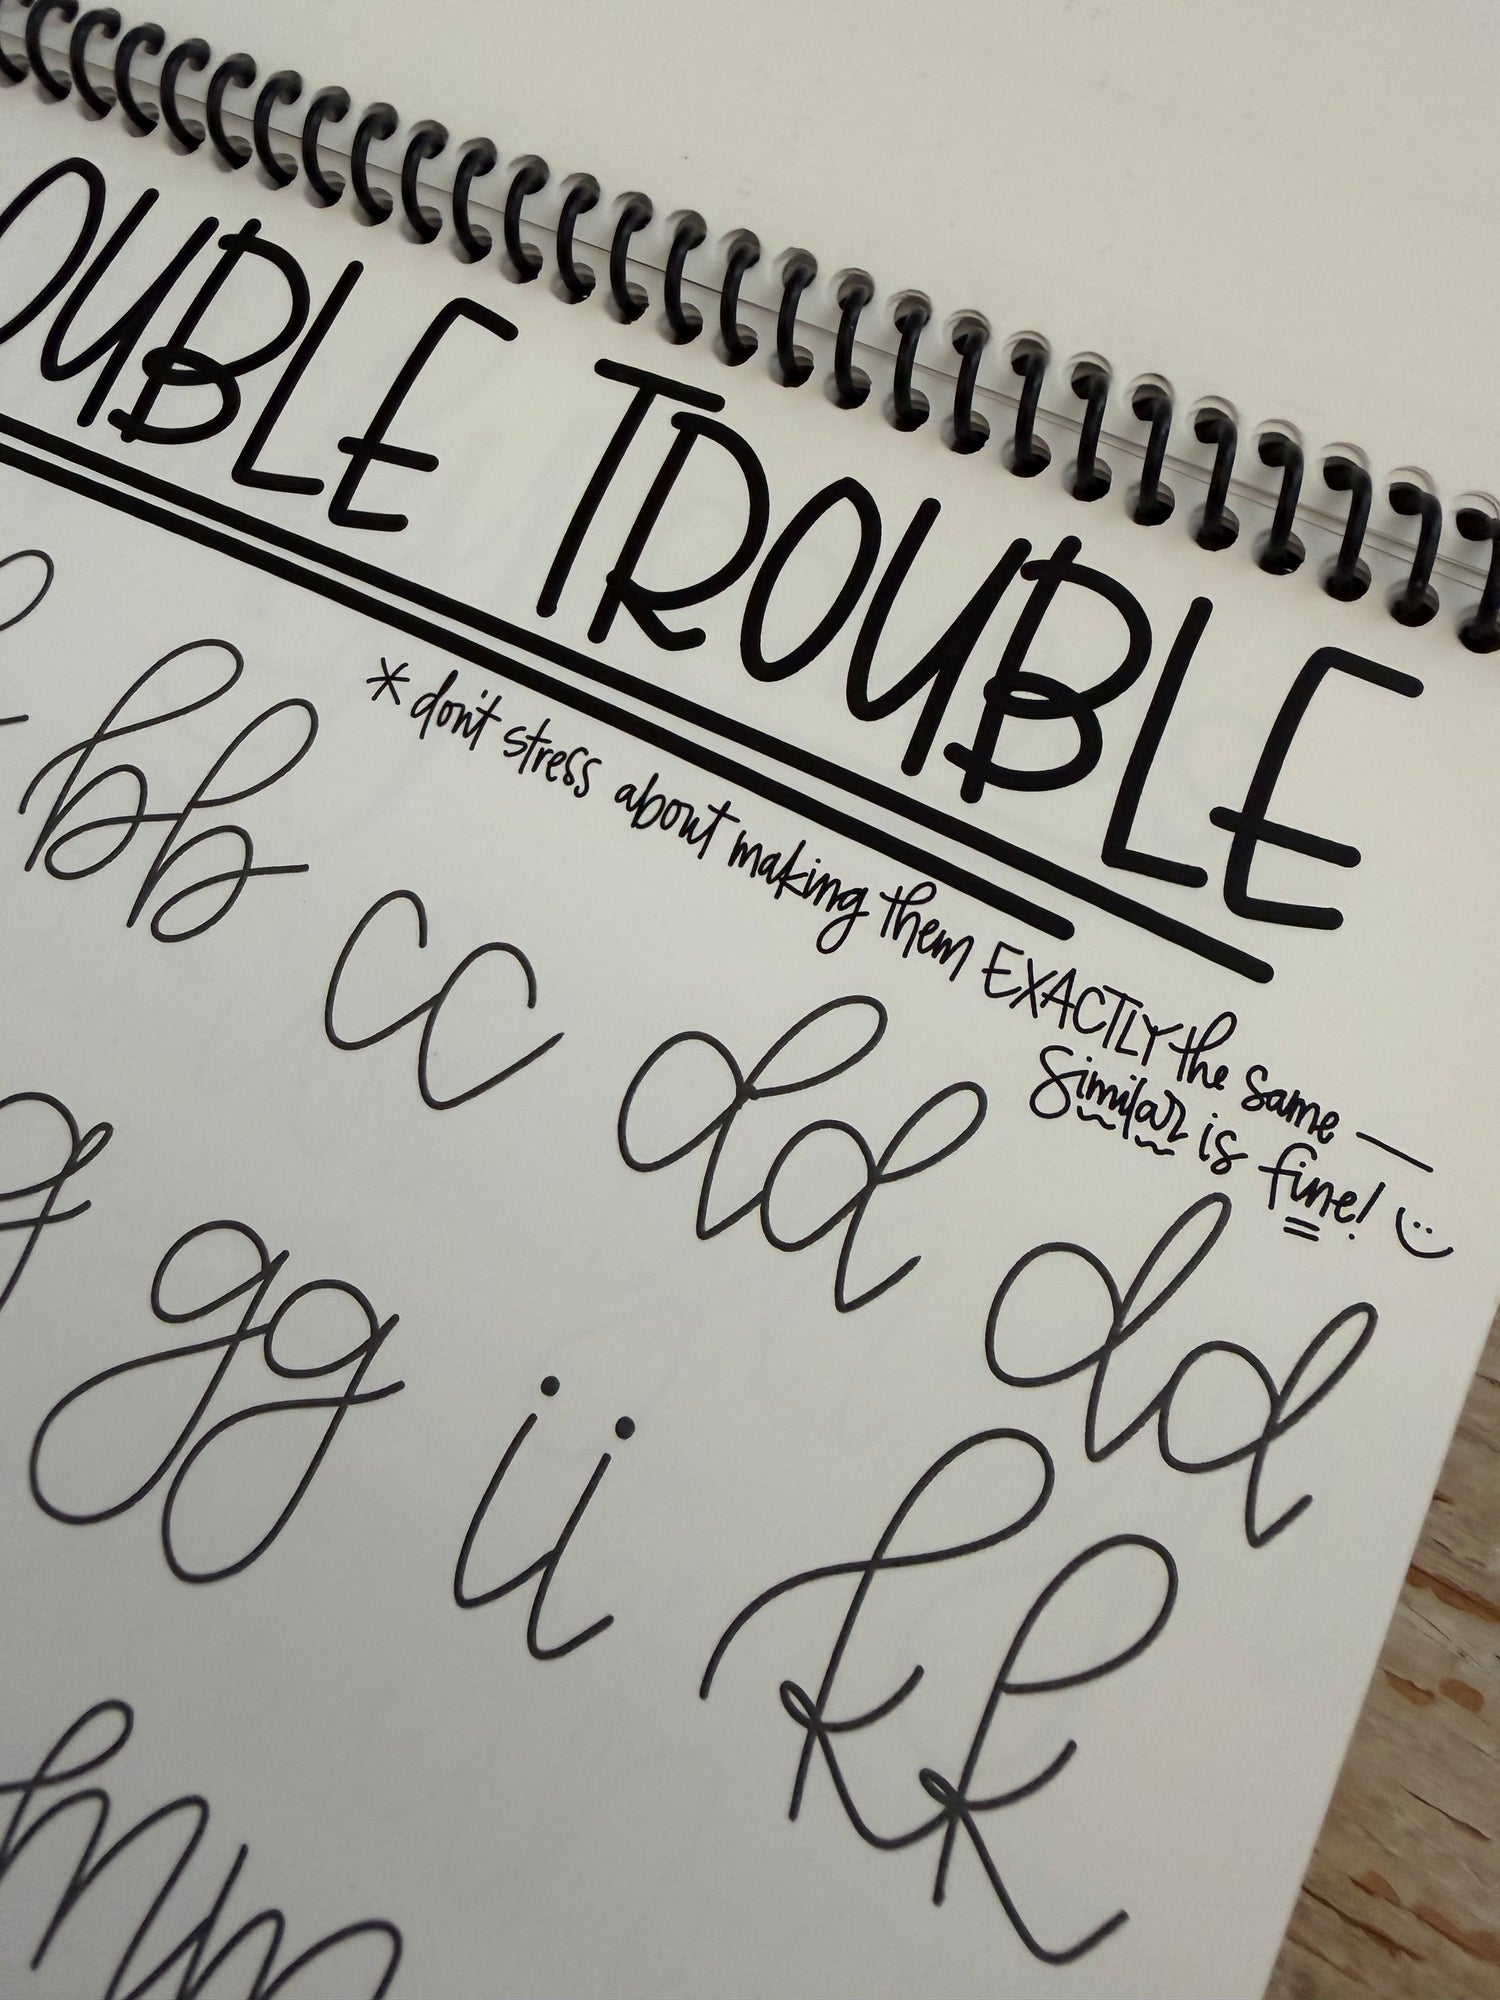 OUBLE TROUBLE
* don't stress about making them EXACTLY the same —
Similar is fine! :)
bb cc dd dd
gg ii kk
mm